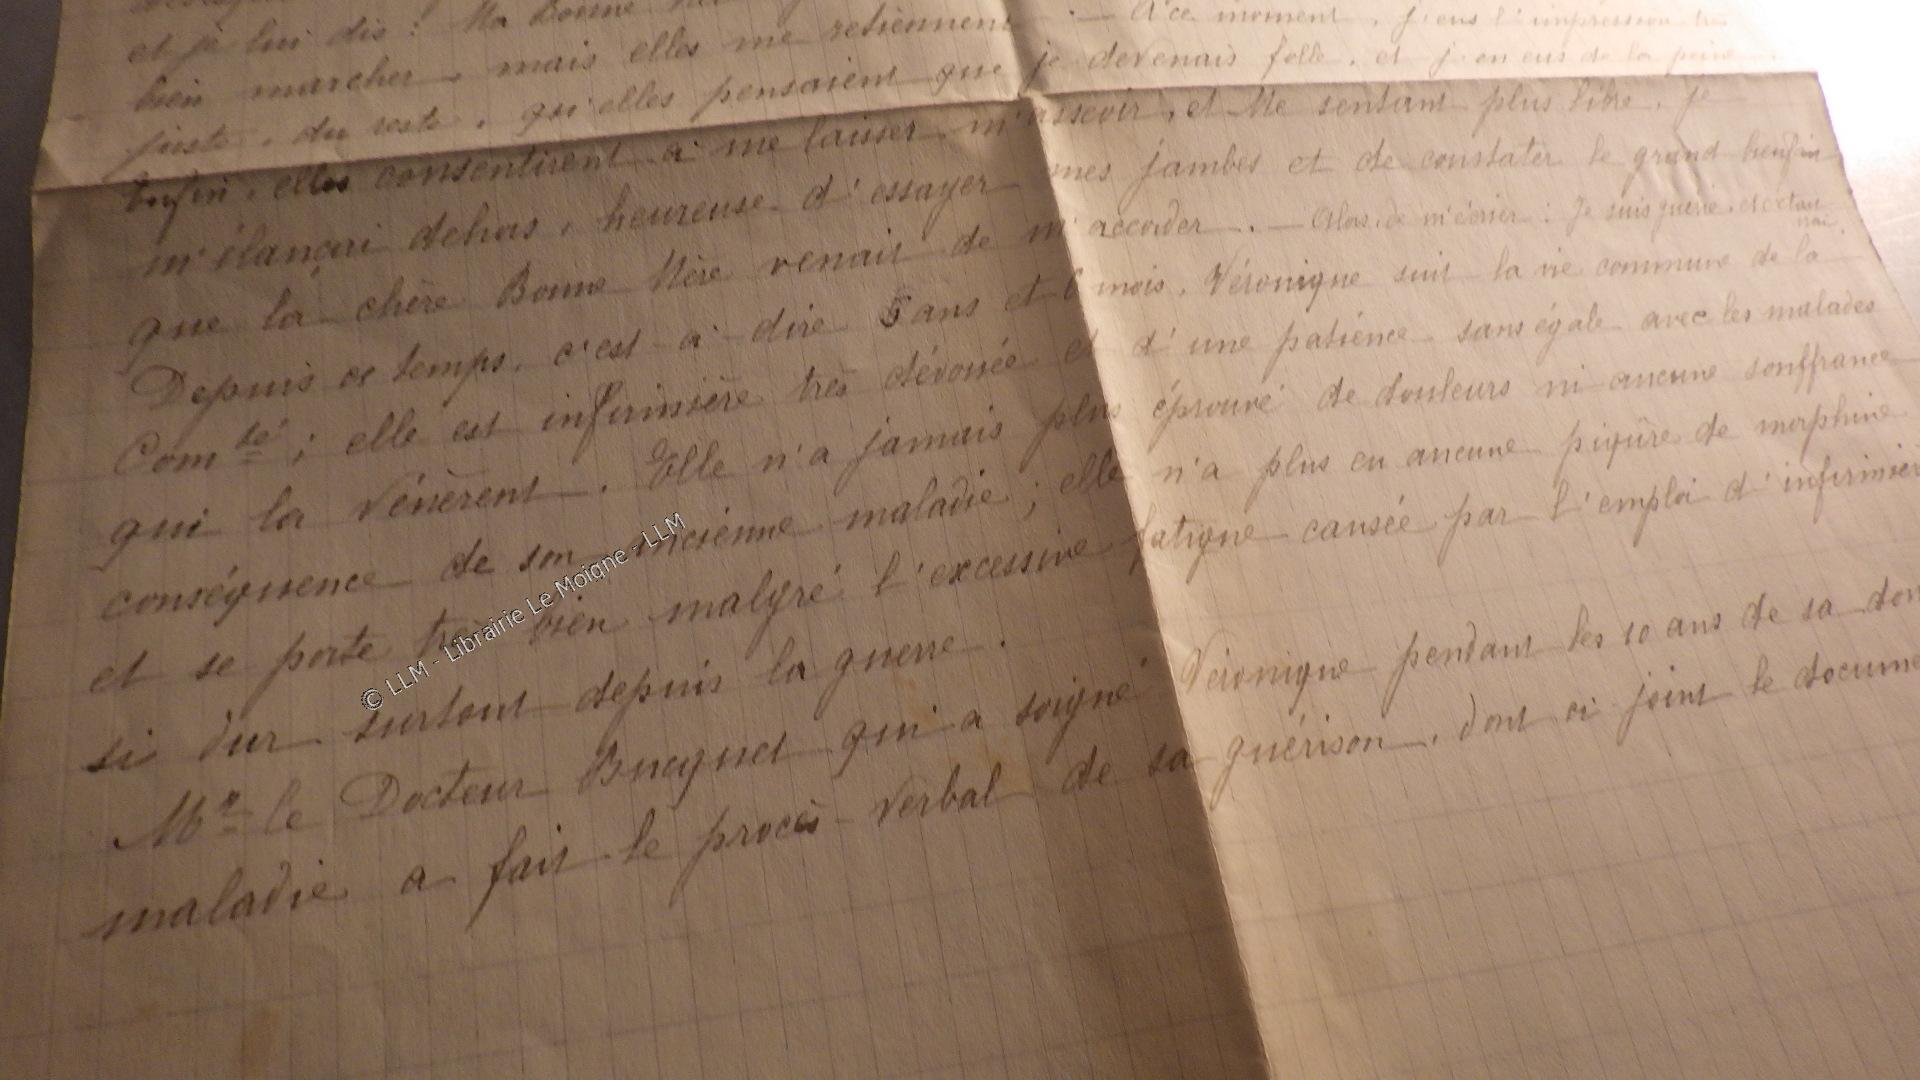 et je lui dis : Ma Bonne
bien marcher, mais elles me retiennent. — A ce moment, j'eus l'impression
juste, du reste, qu'elles pensaient que je devenais folle, et j'en eus de la peine
Enfin, elles consentirent à me laisser m'asseoir, et Me sentant plus libre, je
m'élançai dehors, heureuse d'essayer mes jambes et de constater le grand bienfait
que la chère Bonne Mère venait de m'accorder. — Alors de m'écrier : Je suis guérie, et c'était
vrai.
Depuis ce temps, c'est-à-dire 5 ans et 6 mois, Véronique suit la vie commune de la
Com^té ; elle est infirmière très dévouée et d'une patience sans égale avec les malades
qui la vénèrent. Elle n'a jamais plus éprouvé de douleurs ni aucune souffrance
conséquence de son ancienne maladie ; elle n'a plus eu aucune piqûre de morphine
et se porte très bien malgré l'excessive fatigue causée par l'emploi d'infirmière
si dur surtout depuis la guerre.
M^r le Docteur Bucquet qui a soigné Véronique pendant les 10 ans de sa
maladie a fait le procès-verbal de sa guérison, dont ci joint le docume
© LLM - Librairie Le Moigne - LLM